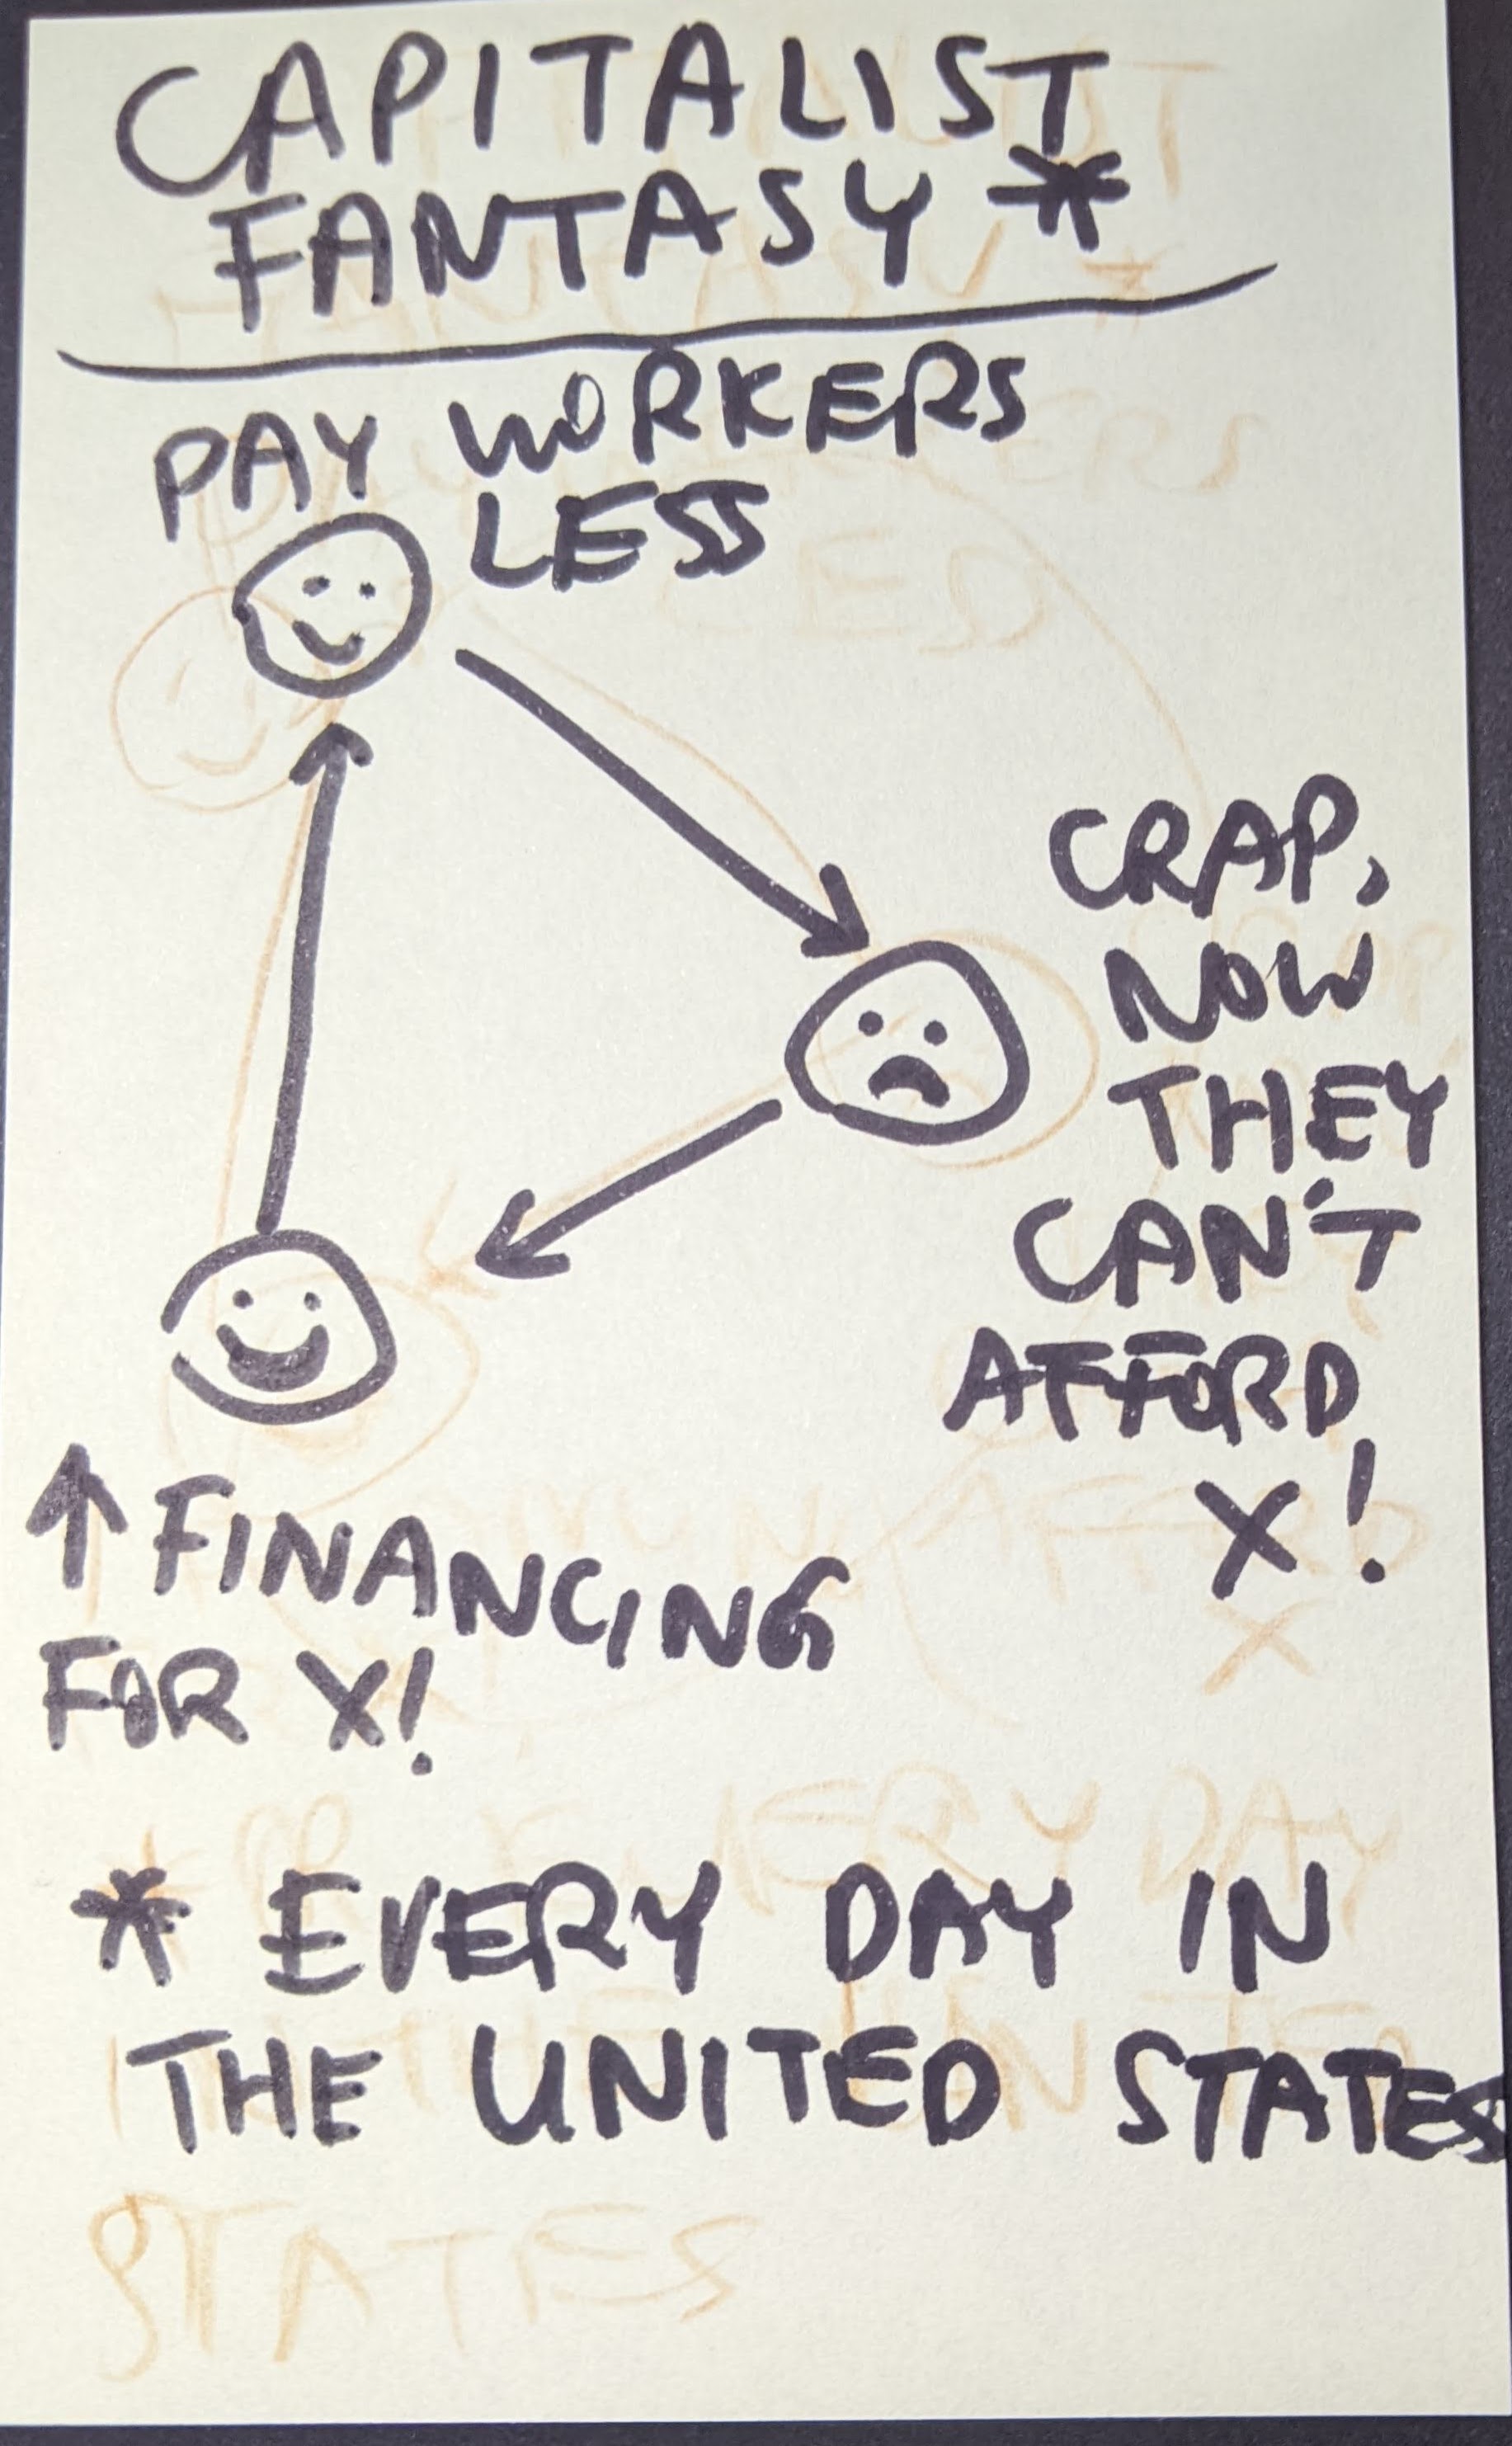 CAPITALIST
FANTASY *
PAY WORKERS
LESS
CRAP,
NOW
THEY
CAN'T
AFFORD
X!
↑ FINANCING
FOR X!
* EVERY DAY IN
THE UNITED STATES
STATES